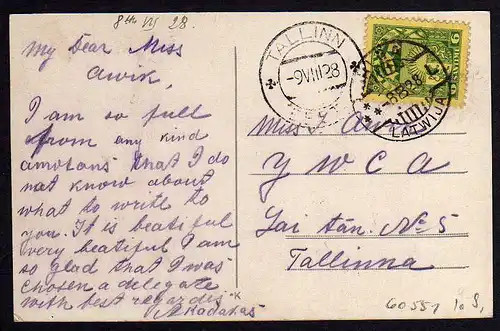 8th VIII 28.
My Dear Miss
Awik,
I am so full
from any kind
amotans that I do
not know about
what to write to
you. It is beatiful
very beatiful I am
so glad that I was
chosen a delegate
with best regardes
TALLINN
-9VIII28
LATWIJA
Miss J. Awik
Y W C A
Lai tän. No 5
Tallinna
60551